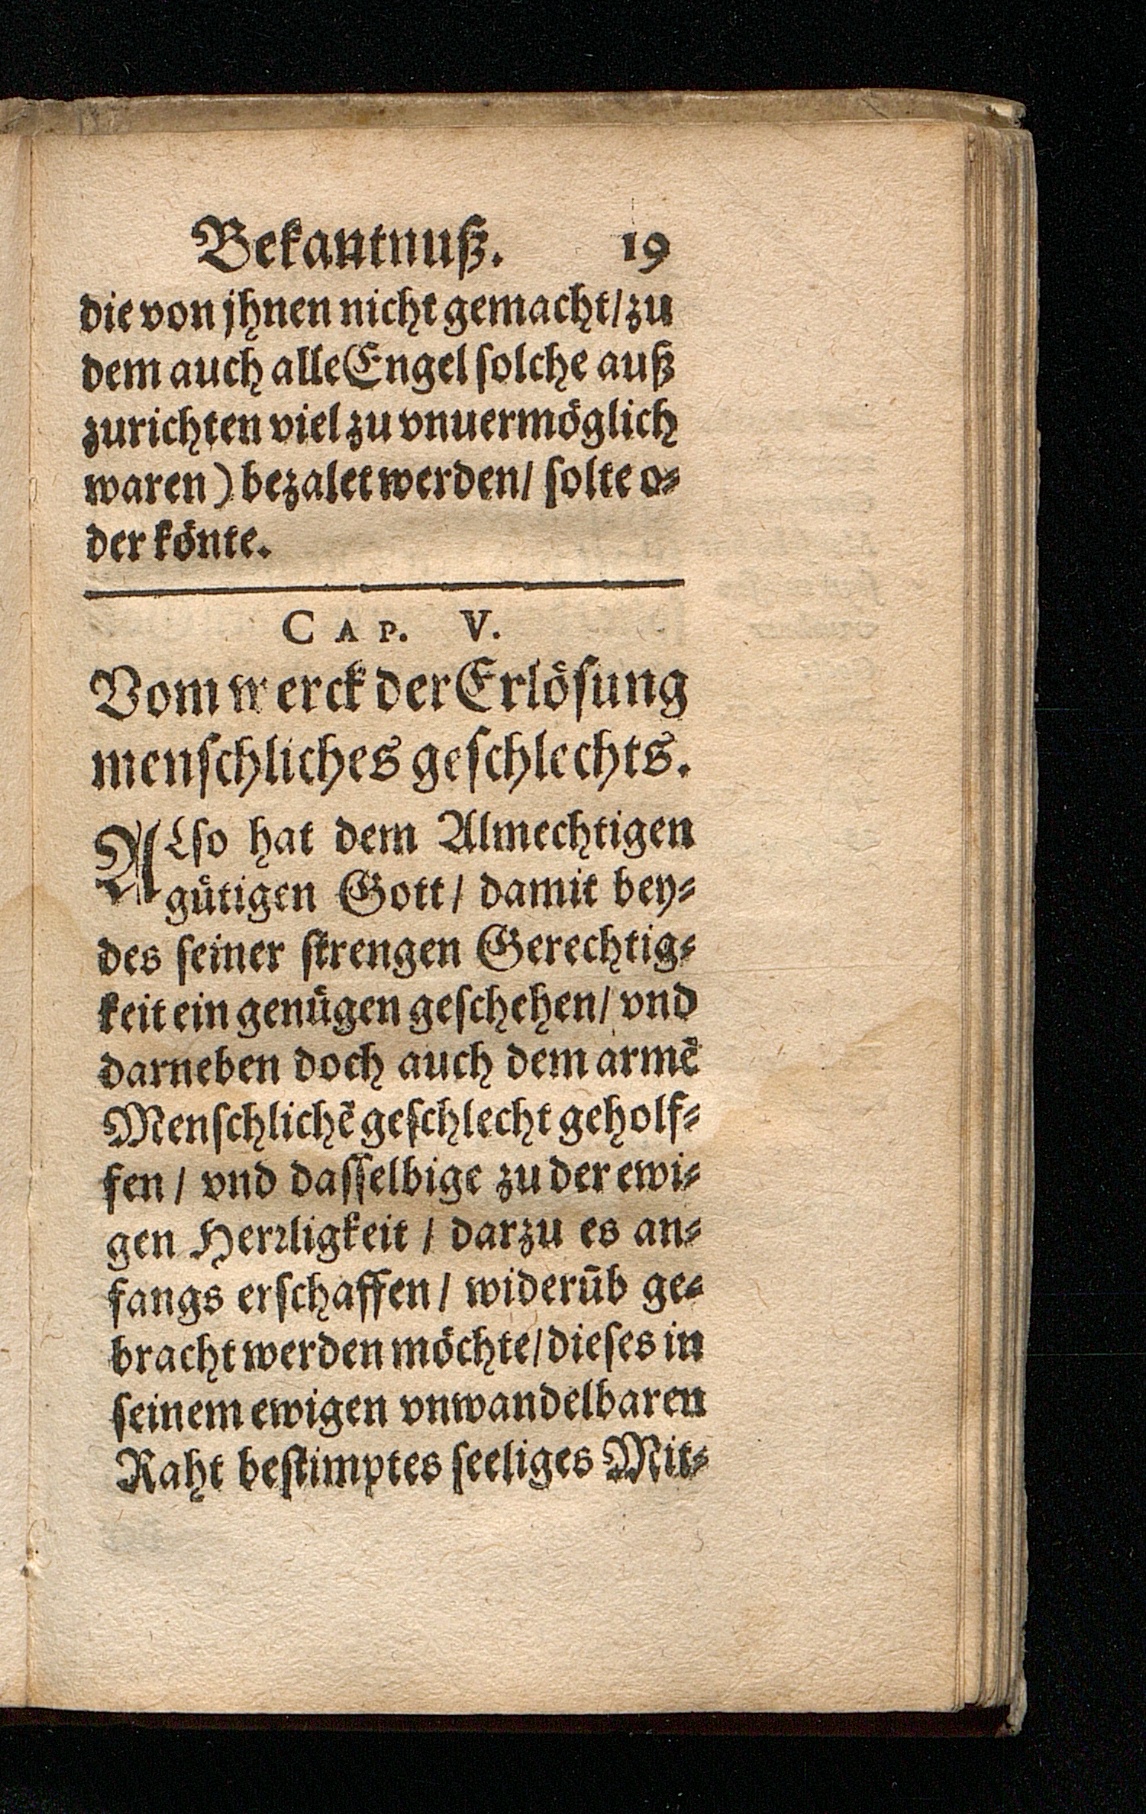 Bekantnuß. 19
die von jhnen nicht gemacht/zu
dem auch alle Engel solche auß
zurichten viel zu vnuermöglich
waren) bezalet werden/ solte o-
der könte.
CAP. V.
Vom werck der Erlösung
menschliches geschlechts.
ALso hat dem Almechtigen
gütigen Gott/ damit bey-
des seiner strengen Gerechtig-
keit ein genügen geschehen/ vnd
darneben doch auch dem armẽ
Menschlichẽ geschlecht geholf-
fen/ vnd dasselbige zu der ewi-
gen Herrligkeit/ darzu es an-
fangs erschaffen/ widerũb ge-
bracht werden möchte/dieses in
seinem ewigen vnwandelbaren
Raht bestimptes seeliges Mit-